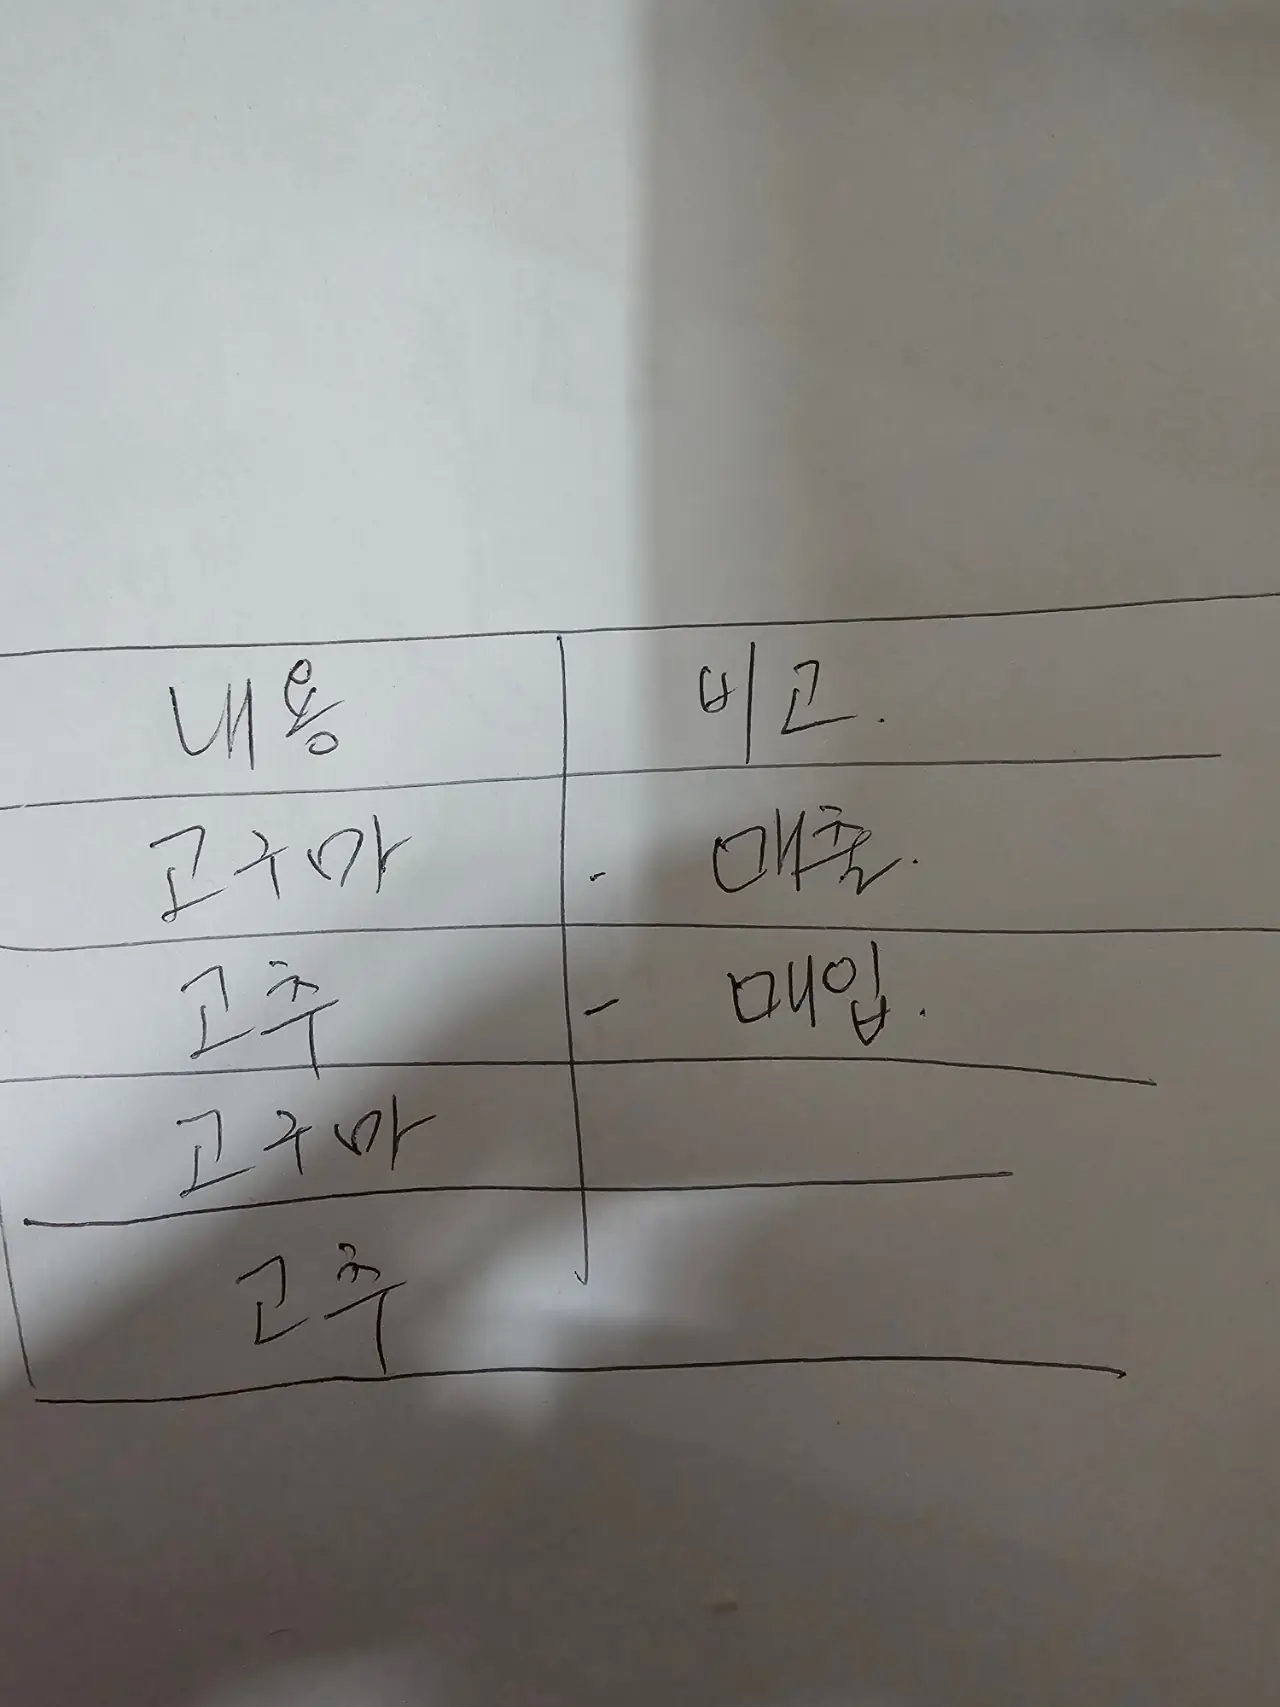 내용 비고.
고구마 - 매출.
고추 - 매입.
고구마
고추